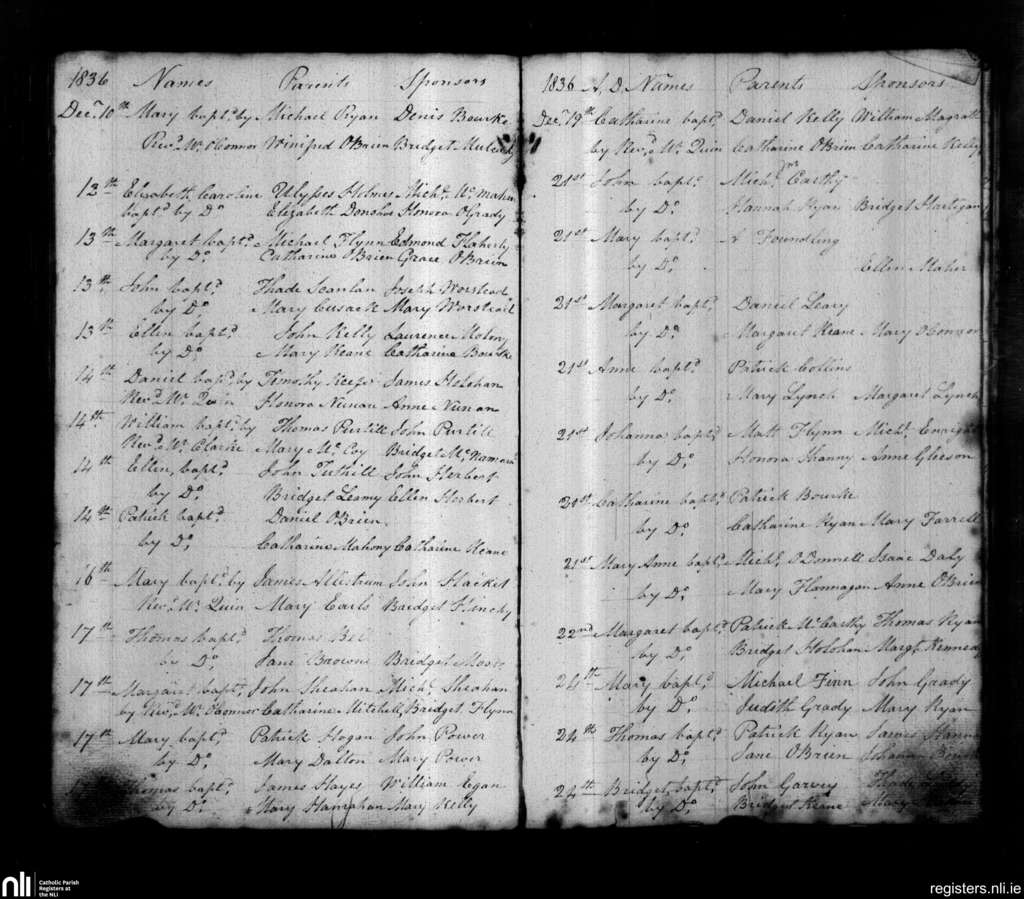 1836 Names Parents Sponsors
Decr. 10th Mary baptd. by Michael Ryan Denis Bourke
Revd. Mr. OConnor Winifred OBrien Bridget Mulcahy
12th Elizabeth Caroline Ulysses Holmes Michl. McMahon
baptd. by Do. Elizabeth Donohoe Honora OGrady
13th Margaret baptd. Michael Flynn Edmond Flaherty
by Do. Catharine OBrien Grace OBrien
13th John baptd. Thade Scanlan Joseph Worstead
by Do. Mary Cusack Mary Worstead
13th Ellen baptd. John Kelly Laurence Molony
by Do. Mary Keane Catharine Bourke
14th Daniel baptd. by Timothy Keefe James Holohan
Revd. Mr. Quin Honora Nunan Anne Nunan
14th William baptd. by Thomas Purtill John Purtill
Revd. Mr. Clarke Mary McCoy Bridget McNamara
14th Ellen baptd. John Tuthill John Herbert
by Do. Bridget Leamy Ellen Herbert
14th Patrick baptd. Daniel OBrien
by Do. Catharine Mahony Catharine Keane
16th Mary baptd. by James Allistrum John Hacket
Revd. Mr. Quin Mary Earls Bridget Clinchy
17th Thomas baptd. Thomas Bell
by Do. Jane Browne Bridget Moore
17th Margaret baptd. John Sheahan Michl. Sheahan
by Revd. Mr. OConnor Catharine Mitchell Bridget Flynn
17th Mary baptd. Patrick Hogan John Power
by Do. Mary Dalton Mary Power
Thomas baptd. James Hayes William Egan
by Do. Mary Hanrahan Mary Kelly
1836 A. D Names Parents Sponsors
Decr. 19th Catharine baptd. Daniel Kelly William Magrath
by Revd. Mr. Quin Catharine OBrien Catharine Kelly
21st John baptd. Michl. McCarthy
by Do. Hannah Ryan Bridget Hartigan
21st Mary baptd. A Foundling
by Do. Ellen Maher
21st Margaret baptd. Daniel Leary
by Do. Margaret Keane Mary OConnor
21st Anne baptd. Patrick Collins
by Do. Mary Lynch Margaret Lynch
21st Johanna baptd. Matt Flynn Michl. Enright
by Do. Honora Shanny Anne Gleeson
21st Catharine baptd. Patrick Bourke
by Do. Catharine Ryan Mary Farrell
21st Mary Anne baptd. Michl. ODonnell Isaac Daly
by Do. Mary Flannagan Anne OBrien
22nd Margaret baptd. Patrick McCarthy Thomas Ryan
by Do. Bridget Holohan Margt. Kennedy
24th Mary baptd. Michael Finn John Grady
by Do. Judith Grady Mary Ryan
24th Thomas baptd. Patrick Ryan James
by Do. Jane OBrien Johanna
24th Bridget baptd. John Garvey Thade
by Do. Bridget Keane Mary
nli Catholic Parish
Registers at
the NLI
registers.nli.ie